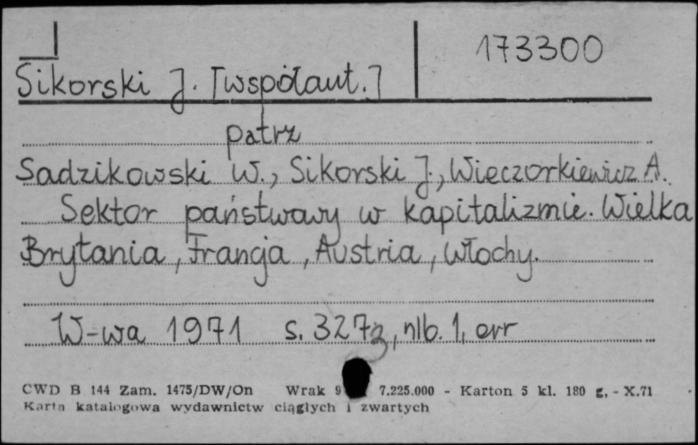 173300
Sikorski J. [współaut.]
patrz
Sadzikowski W., Sikorski J., Wieczorkiewicz A.
Sektor państwowy w kapitalizmie. Wielka
Brytania, Francja, Austria, Włochy.
W-wa 1971 s. 327, nlb. 1, err
CWD B 144 Zam. 1475/DW/On Wrak 9 7.225.000 - Karton 5 kl. 180 g, - X.71
Karta katalogowa wydawnictw ciągłych i zwartych